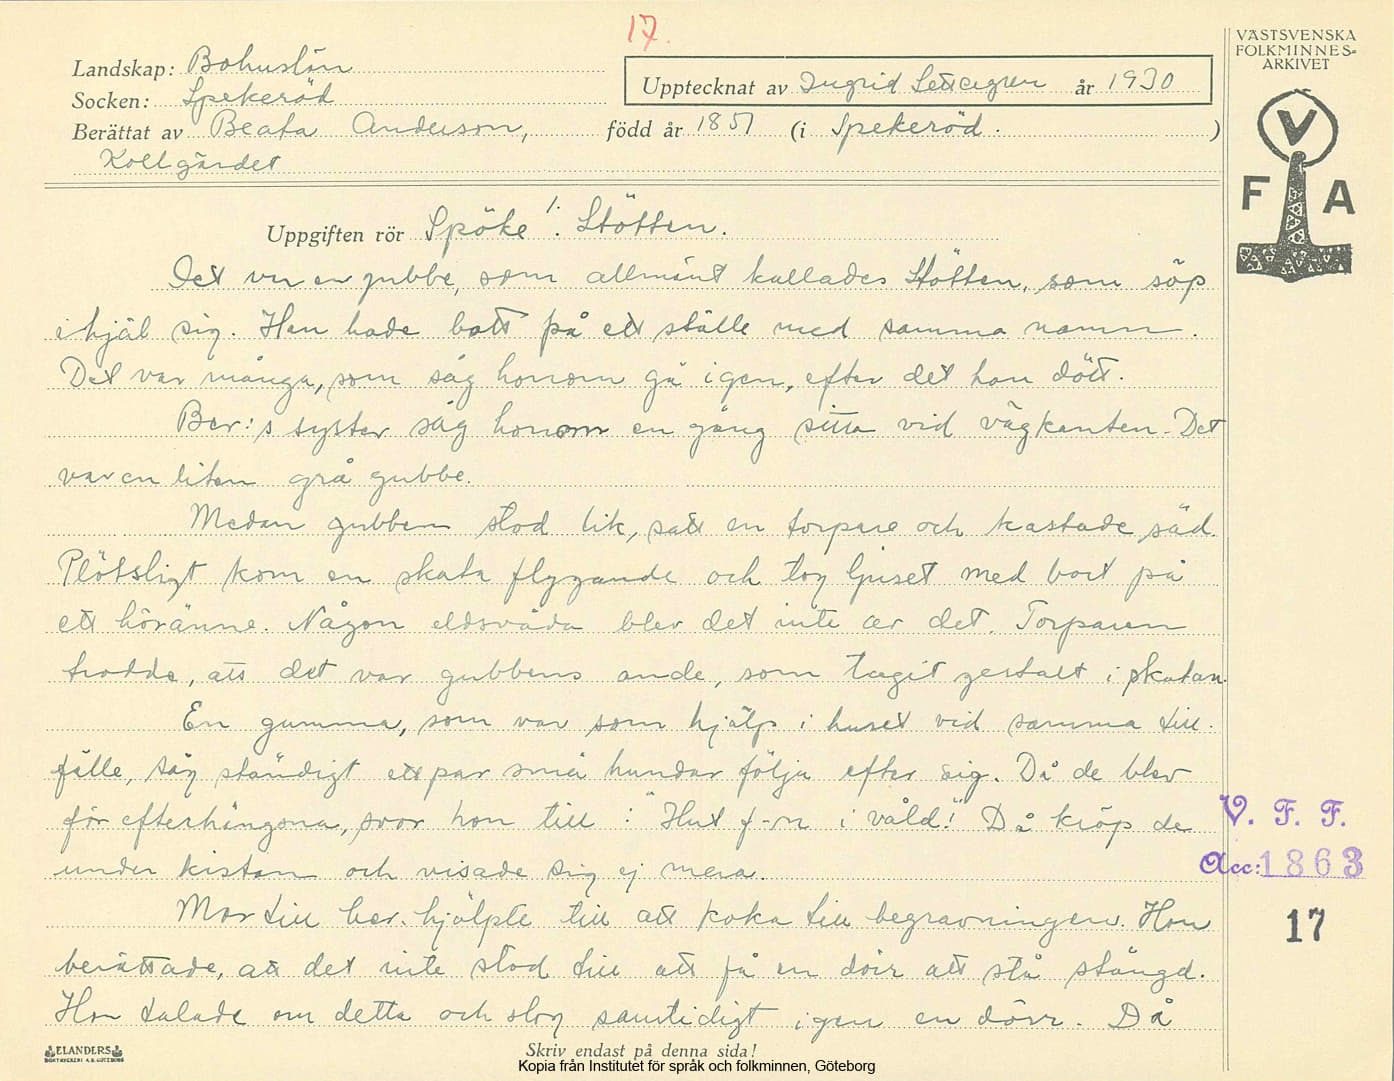 17.
VÄSTSVENSKA
FOLKMINNES-
ARKIVET
V
F A
Landskap: Bohuslän
Socken: Spekeröd
Upptecknat av Ingrid år 1930
Berättat av Beata Anderson, född år 1851 (i Spekeröd. )
Kollgärdet
Uppgiften rör Spöke 1. Stötten.
Det var en gubbe, som allmänt kallades Stötten, som söp
ihjäl sig. Han hade bott på ett ställe med samma namn.
Det var många, som såg honom gå igen, efter det han dött.
Ber:s syster såg honom en gång sitta vid vägkanten. Det
var en liten grå gubbe.
Medan gubben stod lik, satt en torpare och kastade säd.
Plötsligt kom en skata flygande och tog ljuset med bort på
ett höränne. Någon eldsvåda blev det inte av det. Torparen
trodde, att det var gubbens ande, som tagit gestalt i skatan.
En gumma, som var som hjälp i huset vid samma till-
fälle, såg ständigt ett par små hundar följa efter sig. Då de blev
för efterhängsna, svor hon till: "Hut f-n i våld!" Då kröp de
under kistan och visade sig ej mera.
Mor till ber. hjälpte till att koka till begravningen. Hon
berättade, att det inte stod till att få en dörr att stå stängd.
Hon talade om detta och slog samtidigt igen en dörr. Då
V. F. F.
Acc: 1863
17
ELANDERS
BOKTRYCKERI A.B. GÖTEBORG
Skriv endast på denna sida!
Kopia från Institutet för språk och folkminnen, Göteborg